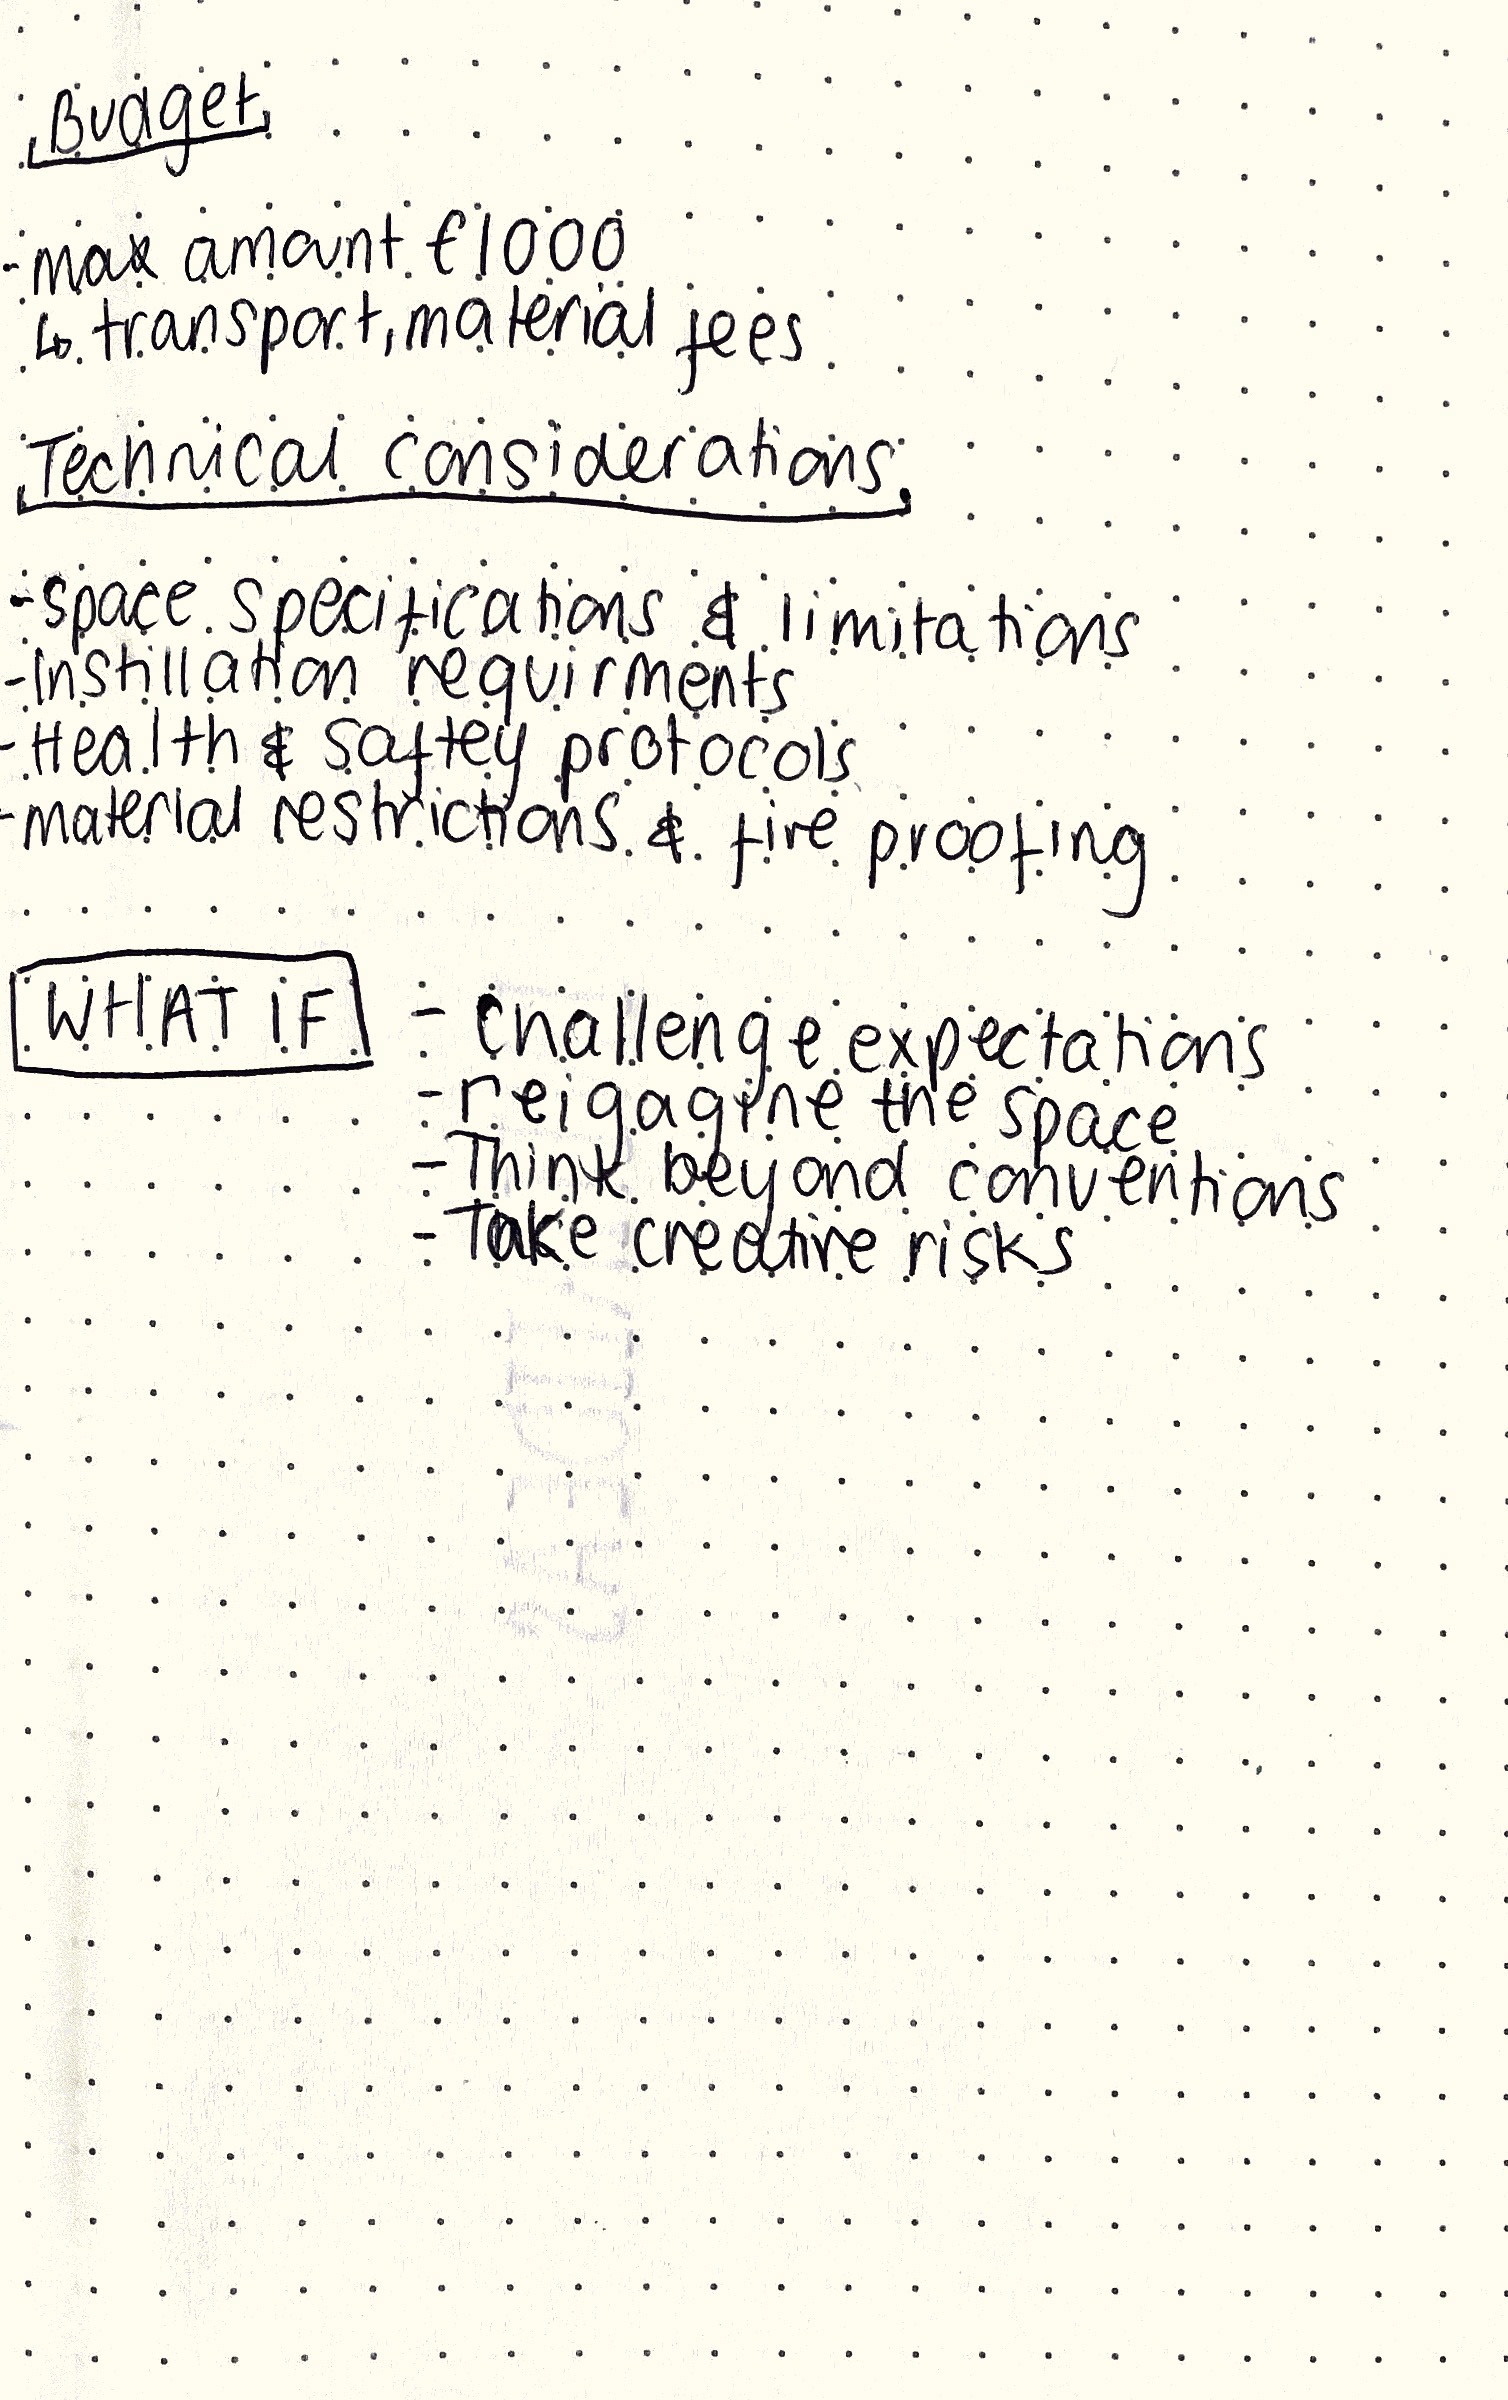 Budget
- max amount £1000
↳ transport, material fees
Technical considerations
- space specifications & limitations
- Instillation requirments
- Health & Saftey protocols
- material restrictions & fire proofing
WHAT IF
- challenge expectations
- reigagine the space
- Think beyond conventions
- Take creative risks